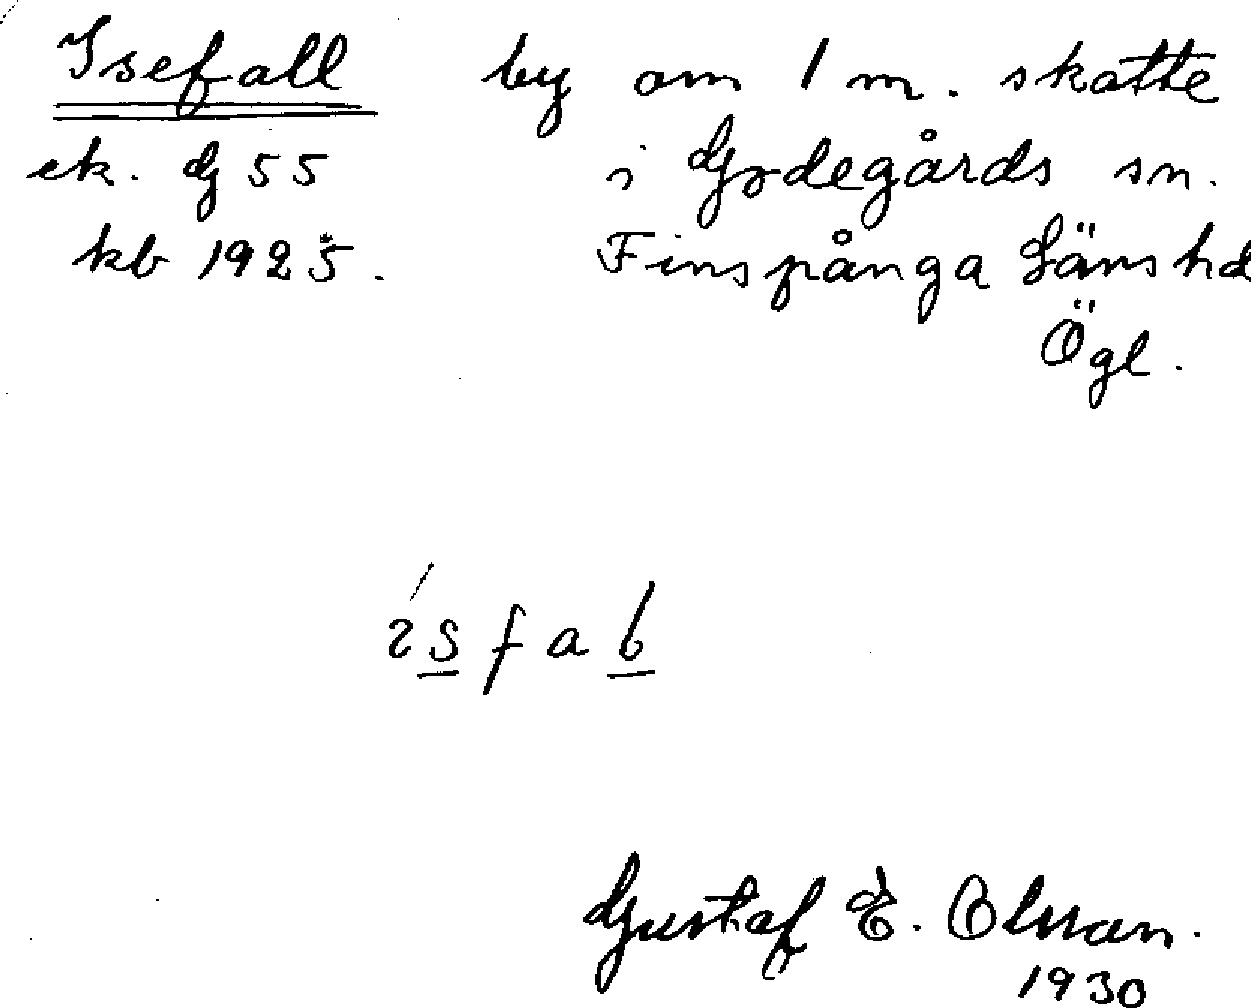 Isefall by om 1 m. skatte
ek. G 55 i Godegårds sn.
kb 1925. Finspånga Länshd
Ögl.
ísfab
Gustaf E. Olsson.
1930